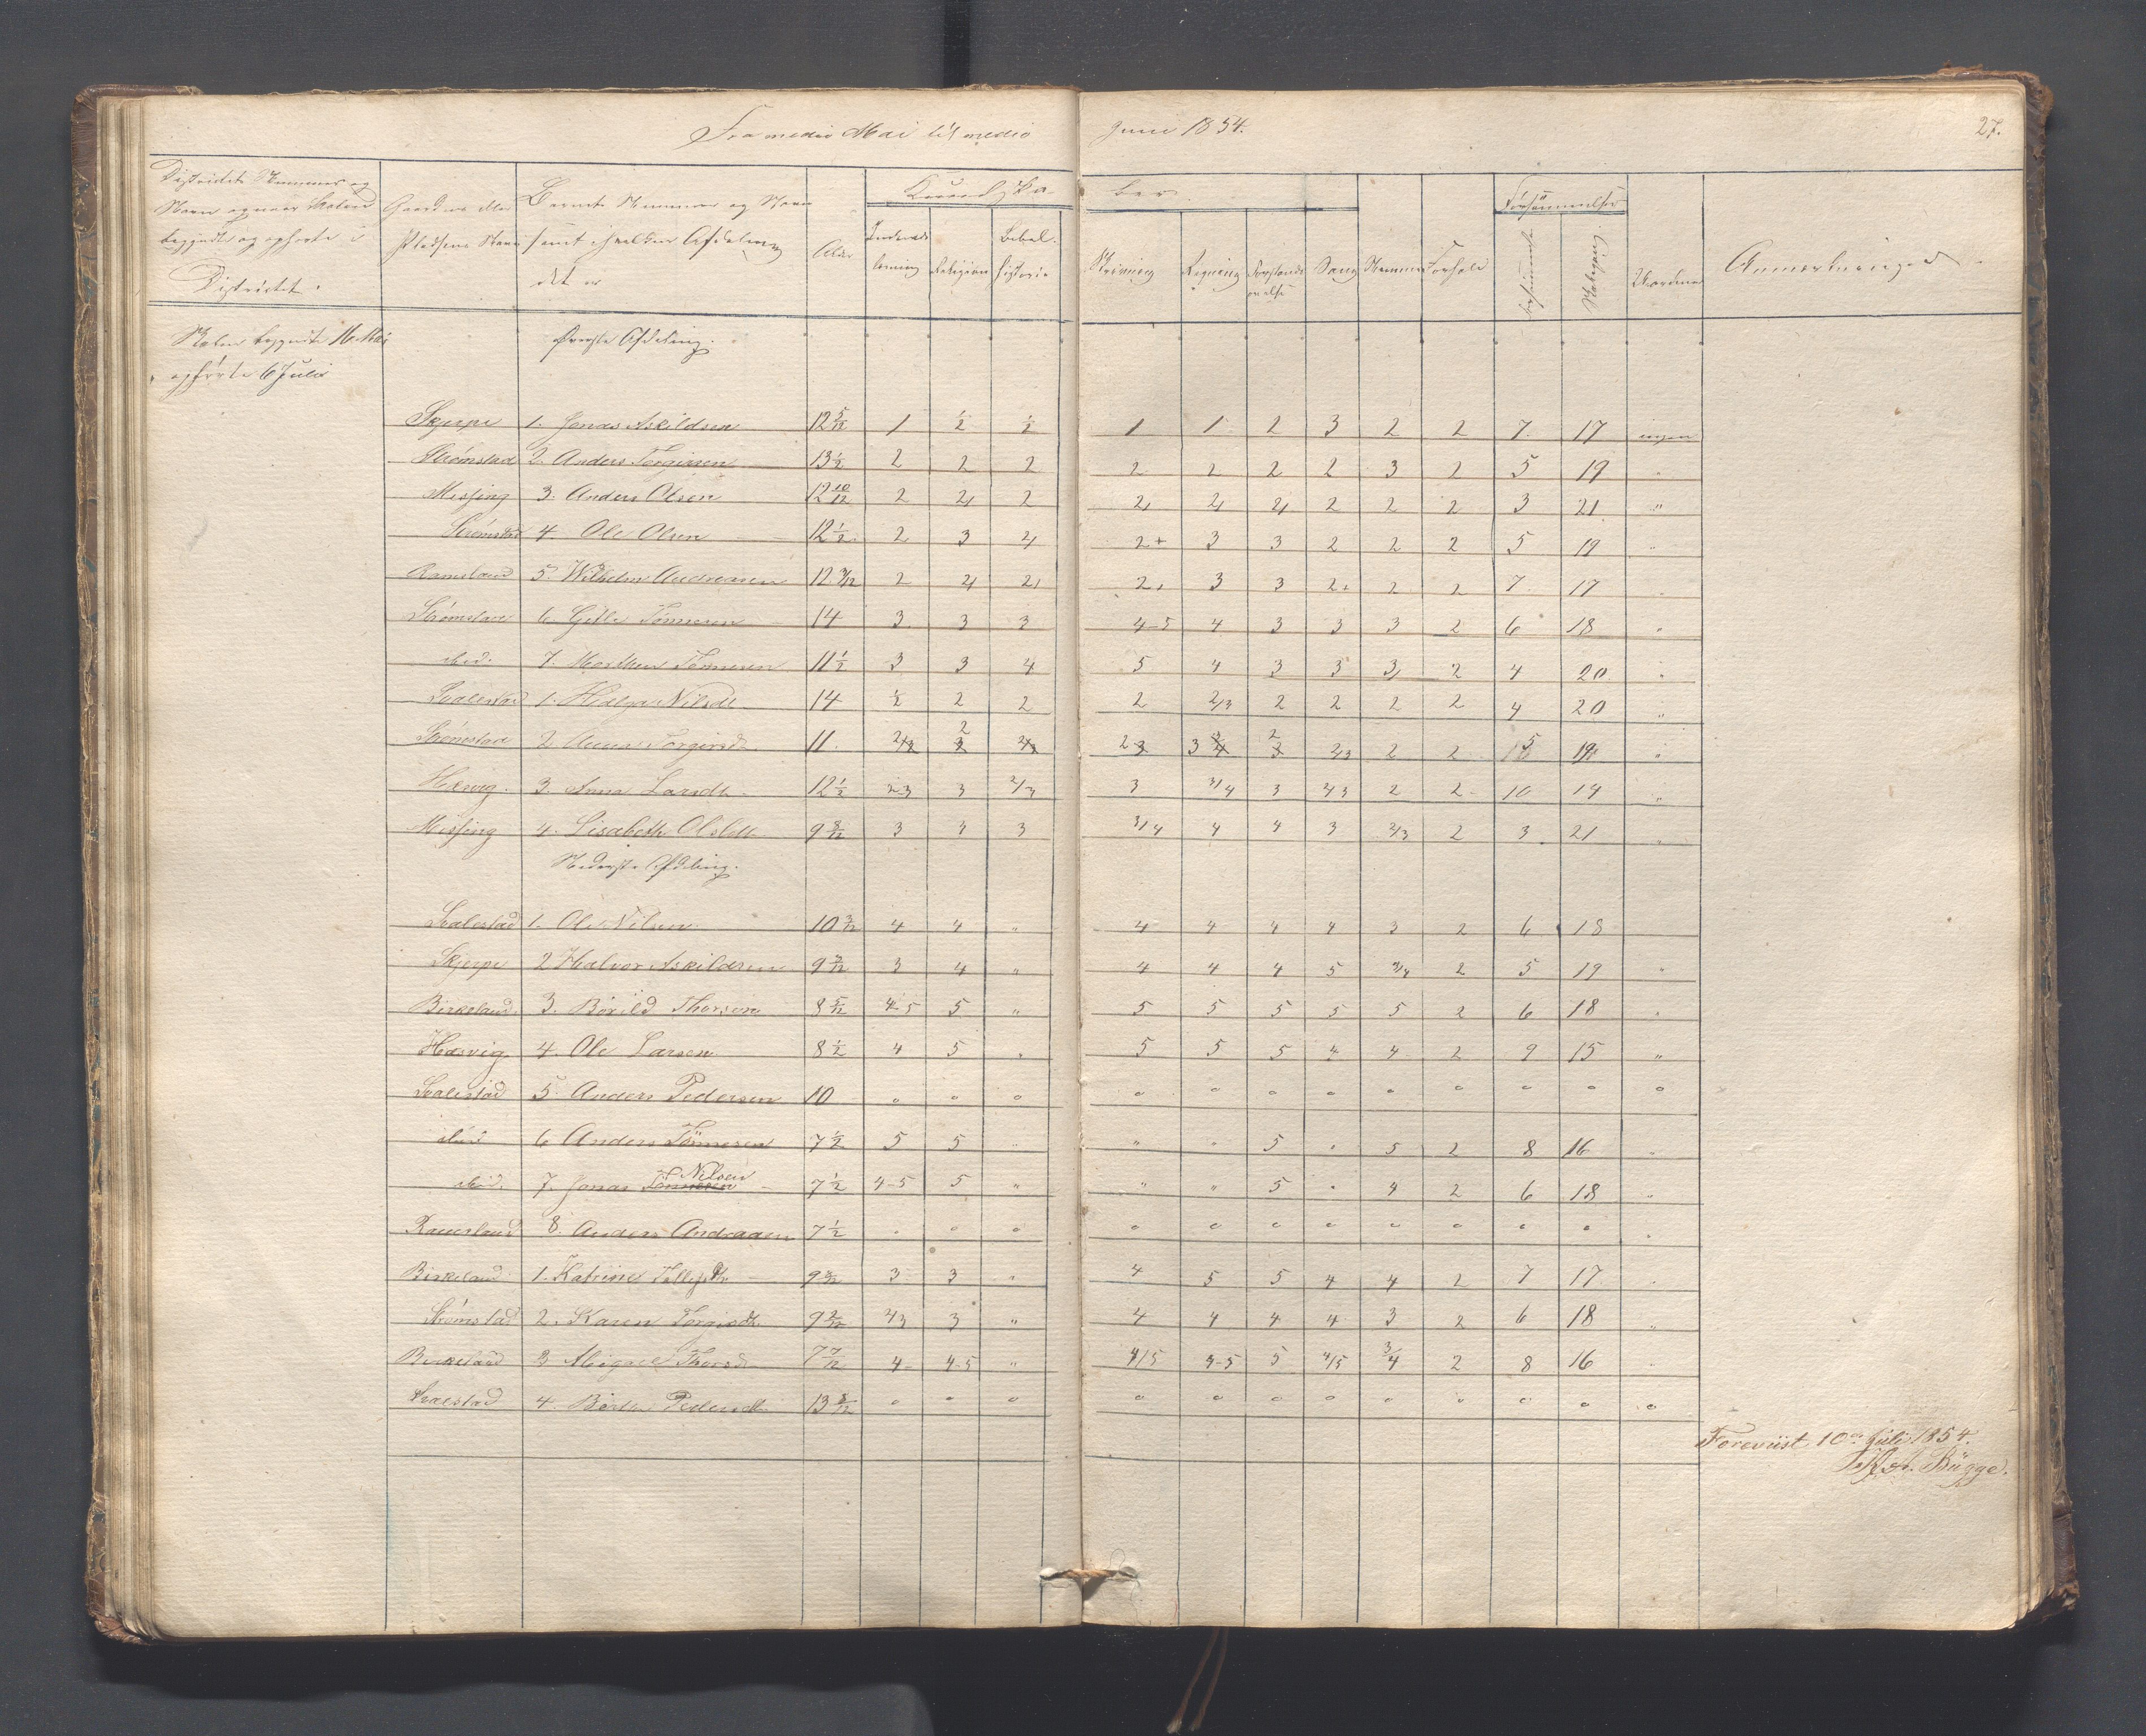 Fra medio Mai til medio Juni 1854. 27.
Districtets Nummer og Navn og naar Skolen begyndte og ophørte i Districtet.
Gaardens eller Pladsens Navn
Barnets Nummer og Navn samt i hvilken Afdeling det er
Alder
Kundskaber
Indenadslæsning Religion Bibelhistorie Skrivning Regning Forstandsøvelse Sang Nemme Forhold
Forsømmelser
forsømmede Skolegang
Uordener
Anmærkninger
Skolen begyndte 16 Mai
ophørte 6 Juli
Øverste Afdeling.
Skjerpe 1. Jonas Askildsen 12 5/12 1 1/2 1/2 1 1 2 3 2 2 7 17 ingen
Strömstad 2. Anders Torgirsen 13 1/2 2 2 2 2 2 2 2 3 2 5 19 "
Messing 3. Anders Olsen 12 10/12 2 2, 2 2, 2, 2, 2 2 2 3 21 "
Strömstad 4 Ole Olsen 12 1/2 2 3 2, 2+ 3 3 2 2 2 5 19 "
Ramsland 5. Wilhelm Andreasen 12 3/12 2 2, 2, 2+ 3 3 2+ 2 2 7 17 "
Strömstad 6 Gitle Tönnesen 14 3 3 3 4-5 4 3 3 3 2 6 18 "
ibid. 7. Morthen Tönnesen 11 1/2 3 3 4 5 4 3 3 3 2 4 20 "
Svalestad 1. Helga Nilsdt. 14 1/2 2 2 2 2/3 2 2 2 2 4 20 "
Strömstad 2 Anna Torgirsd. 11. 2/3 2 2/3 2-3 3 2 2/3 2 2 5 19 "
Hæsvig. 3. Anna Larsdt. 12 1/2 2-3 3 2/3 3 3/4 3 2/3 2 2 10 14 "
Messing 4. Lisabeth Olsdtt 9 8/12 3 4 3 3/4 4 4 3 2/3 2 3 21 "
Nederste Afdeling.
Svalestad 1. Ole Nilsen 10 3/12 4 4 " 4 4 4 4 3 2 6 18
Skjerpe 2 Halvor Askildsen 9 2/12 3 4 " 4 4 4 5 3/4 2 5 19 "
Birkeland. 3. Börild Thorsen 8 5/12 4-5 5 " 5 5 5 5 5 2 6 18 "
Hæsvig 4. Ole Larsen 8 1/2 4 5 " 5 5 5 4 4 2 9 15 "
Svalestad 5 Anders Pedersen 10 o o o o o o o o o o o o
ibid 6 Anders Tönnesen 7 1/2 5 5 " " " 5 " 5 2 8 16 "
ibid. 7. Jonas Nilsen 7 1/2 4-5 5 " " " 5 " 4 2 6 18 "
Ramsland 8. Anders Andreasen 7 1/2 o o o o o o o o o o o "
Birkeland 1. Katrine 9 3 3 " 4 5 5 4 4 2 7 17 "
Strömstad 2. Karen Torgirsdt. 9 2/12 4/3 3 " 4 4 4 4 3 2 6 18 "
Birkeland 3 Abigael Thorsd. 7 7/12 4 4-5 " 4/5 4-5 5 4/5 3/4 2 8 16 "
Svalestad 4. Berthe Pedersdt. 13 8/12 o o o o o o o o o o o o
Foreviist 10de Juli 1854.
Bügge.